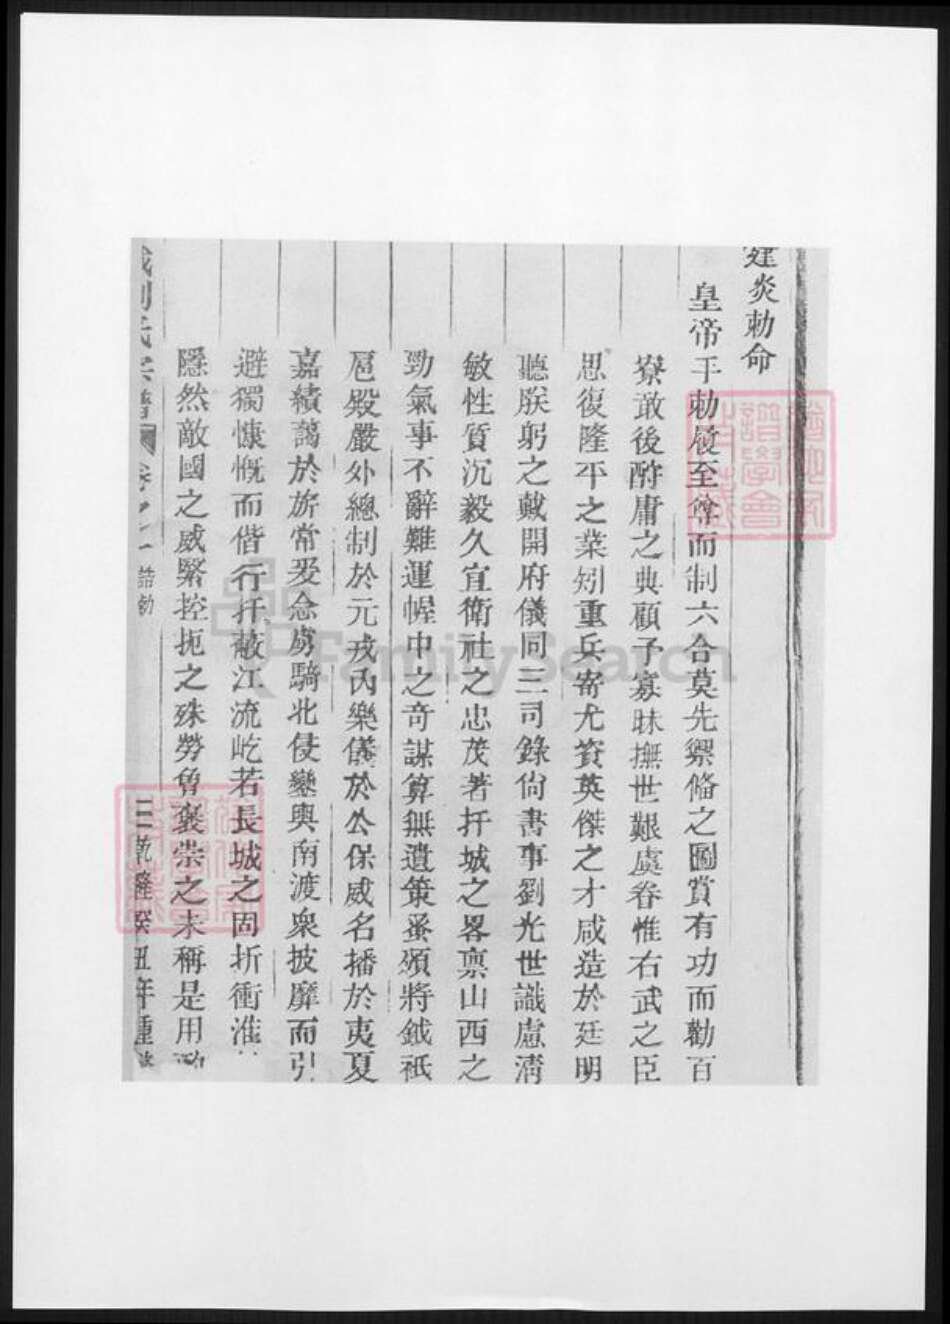 建炎勅命
皇帝手勅履至尊而制六合莫先禦脩之圖賞有功而勸百
寮敢後酧庸之典顧予寡昧撫世艱虞眷惟右武之臣
思復隆平之業矧重兵寄尤資英傑之才咸造於廷明
聽朕躬之戴開府儀同三司錄尚書事劉光世識慮淸
敏性質沉毅久宣衛社之忠茂著扞城之畧禀山西之
勁氣事不辭難運幄中之奇謀算無遺策蚤頒將鉞祇
扈殿嚴外總制於元戎內樂儀於公保威名播於夷夏
嘉績藹於旂常爰念虜騎北侵鑾輿南渡衆披靡而引
避獨慷慨而偕行扞蔽江流屹若長城之固折衝淮
隱然敵國之威緊控扼之殊勞膺褒崇之未稱是用
劉氏宗譜 卷之一 誥勅 三 乾隆癸丑年重
FamilySearch